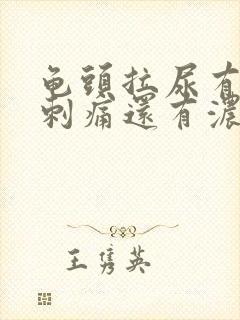 龟頭拉尿有
刺痛還有濃
王隽英